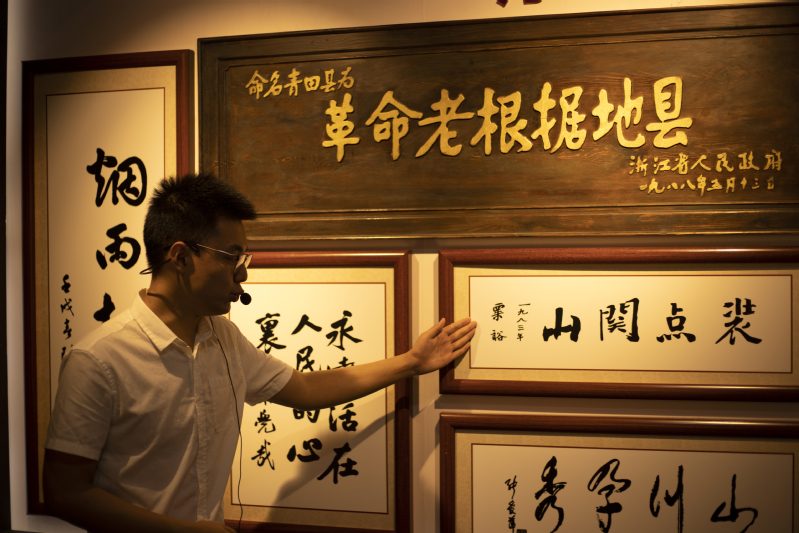 命名青田县为
革命老根据地县
浙江省人民政府
一九八八年五月十三日
烟雨
壬戌春
永
活在
人民的心
裏
覺哉
装点関山
一九八三年
粟裕
山川孕秀